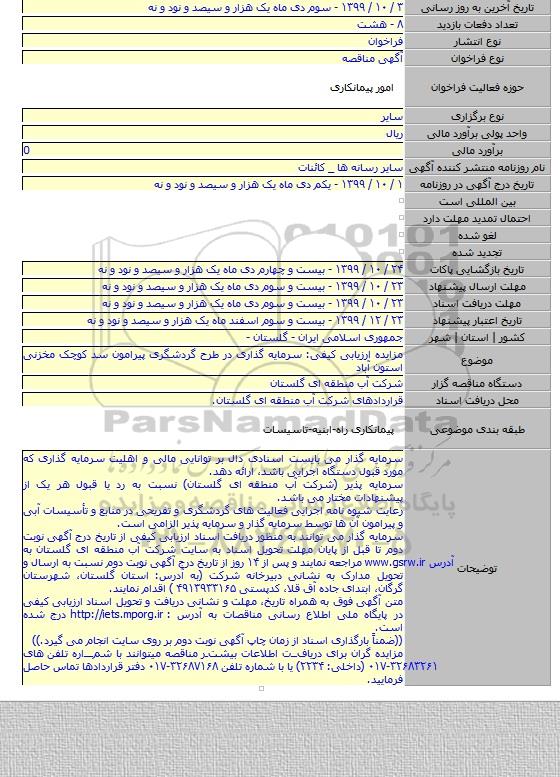 تاریخ آخرین به روز رسانی ۳ / ۱۰ / ۱۳۹۹ - سوم دی ماه یک هزار و سیصد و نود و نه
تعداد دفعات بازدید ۸ - هشت
نوع انتشار فراخوان
نوع فراخوان آگهی مناقصه
حوزه فعالیت فراخوان امور پیمانکاری
نوع برگزاری سایر
واحد پولی برآورد مالی ریال
برآورد مالی 0
نام روزنامه منتشر کننده آگهی سایر رسانه ها _ کائنات
تاریخ درج آگهی در روزنامه ۱ / ۱۰ / ۱۳۹۹ - یکم دی ماه یک هزار و سیصد و نود و نه
بین المللی است
احتمال تمدید مهلت دارد
لغو شده
تجدید شده
تاریخ بازگشایی پاکات ۲۴ / ۱۰ / ۱۳۹۹ - بیست و چهارم دی ماه یک هزار و سیصد و نود و نه
مهلت ارسال پیشنهاد ۲۳ / ۱۰ / ۱۳۹۹ - بیست و سوم دی ماه یک هزار و سیصد و نود و نه
مهلت دریافت اسناد ۲۳ / ۱۰ / ۱۳۹۹ - بیست و سوم دی ماه یک هزار و سیصد و نود و نه
تاریخ اعتبار پیشنهاد ۲۳ / ۱۲ / ۱۳۹۹ - بیست و سوم اسفند ماه یک هزار و سیصد و نود و نه
کشور | استان | شهر جمهوری اسلامی ایران - گلستان -
موضوع مزایده ارزیابی کیفی: سرمایه گذاری در طرح گردشگری پیرامون سد کوچک مخزنی
استون آباد
دستگاه مناقصه گزار شرکت آب منطقه ای گلستان
محل دریافت اسناد قراردادهای شرکت آب منطقه ای گلستان
طبقه بندی موضوعی پیمانکاری راه-ابنیه-تاسیسات
ParsNamadData
توضیحات
سرمایه گذار می بایست اسنادی دال بر توانایی مالی و اهلیت سرمایه گذاری که
مورد قبول دستگاه اجرایی باشد، ارائه دهد.
سرمایه پذیر (شرکت آب منطقه ای گلستان) نسبت به رد یا قبول هر یک از
پیشنهادات مختار می باشد.
رعایت شیوه نامه اجرایی فعالیت های گردشگری و تفریحی در منابع و تأسیسات آبی
و پیرامون آن ها توسط سرمایه گذار و سرمایه پذیر الزامی است.
سرمایه گذار می توانند به منظور دریافت اسناد ارزیابی کیفی از تاریخ درج آگهی نوبت
دوم تا قبل از پایان مهلت تحویل اسناد به سایت شرکت آب منطقه ای گلستان به
آدرس www.gsrw.ir مراجعه نمایند و پس از ۱۴ روز از تاریخ درج آگهی نوبت دوم نسبت به ارسال و
تحویل مدارک به نشانی دبیرخانه شرکت (به آدرس: استان گلستان، شهرستان
گرگان، ابتدای جاده آق قلا، کدپستی ۴۹۱۳۹۳۳۱۶۵ ) اقدام نمایند.
متن آگهی فوق به همراه تاریخ، مهلت و نشانی دریافت و تحویل اسناد ارزیابی کیفی
در پایگاه ملی اطلاع رسانی مناقصات به آدرس : http://iets.mporg.ir درج شده
است.
((ضمناً بارگذاری اسناد از زمان چاپ آگهی نوبت دوم بر روی سایت انجام می گیرد.))
مزایده گران برای دریافت اطلاعات بیشتر مناقصه میتوانند با شماره تلفن های
۰۱۷-۳۲۶۸۳۲۶۱ (داخلی: ۲۲۳۴) یا با شماره تلفن ۳۲۶۸۷۱۶۸-۰۱۷ دفتر قراردادها تماس حاصل
فرمایید.